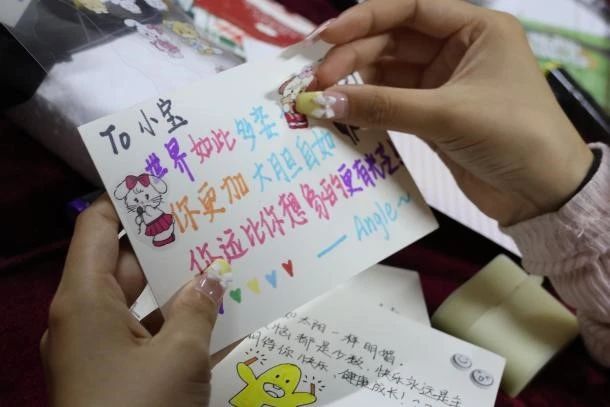 To 小宝
世界如此多姿
你更加大胆自如
你远比你想象的更有
—— Angle~
太阳一样明媚,
恼都是少数,快乐永远是主
待你快乐、健康成长!